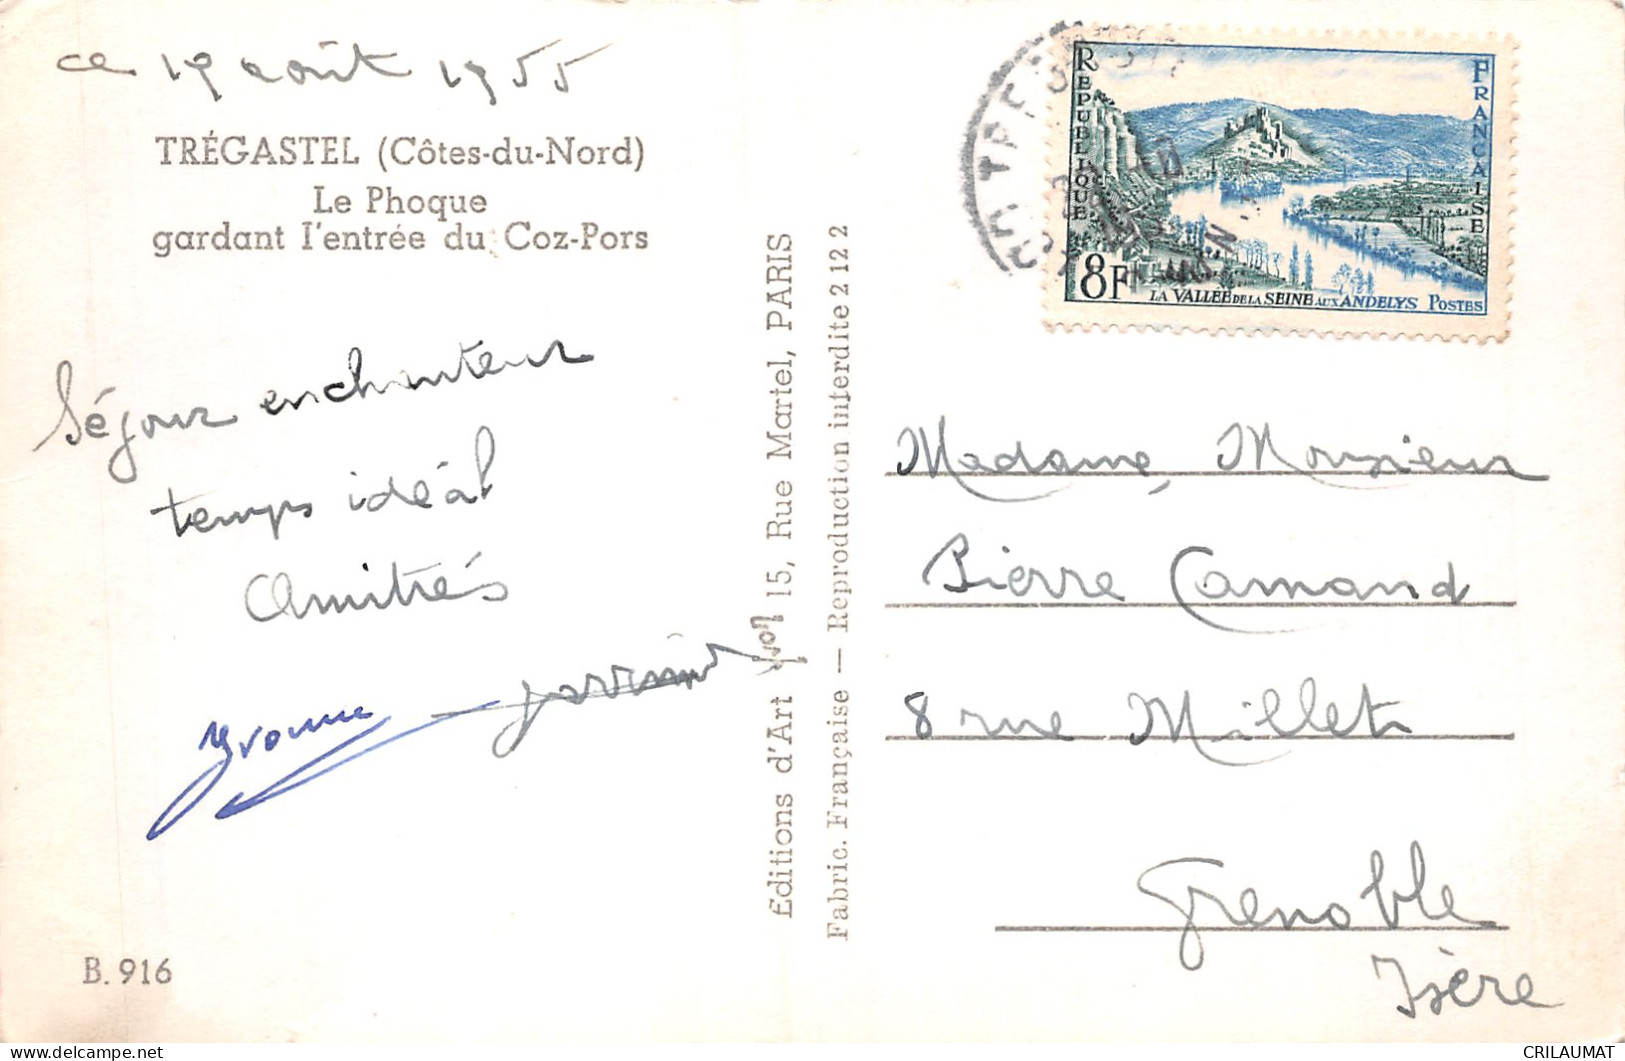 ce 19 août 1955
TRÉGASTEL (Côtes-du-Nord)
Le Phoque
gardant l'entrée du Coz-Pors
Séjour enchanteur
temps idéal
Amitiés
Yvonne
B. 916
Editions d'Art Yvon 15, Rue Martel, PARIS
Fabric. Française — Reproduction interdite 2 12 2
REPUBLIQUE
FRANCAISE
8F
LA VALLEE DE LA SEINE AUX ANDELYS POSTES
Madame, Monsieur
Pierre Camand
8 rue Millet
Grenoble
Isère
CRILAUMAT